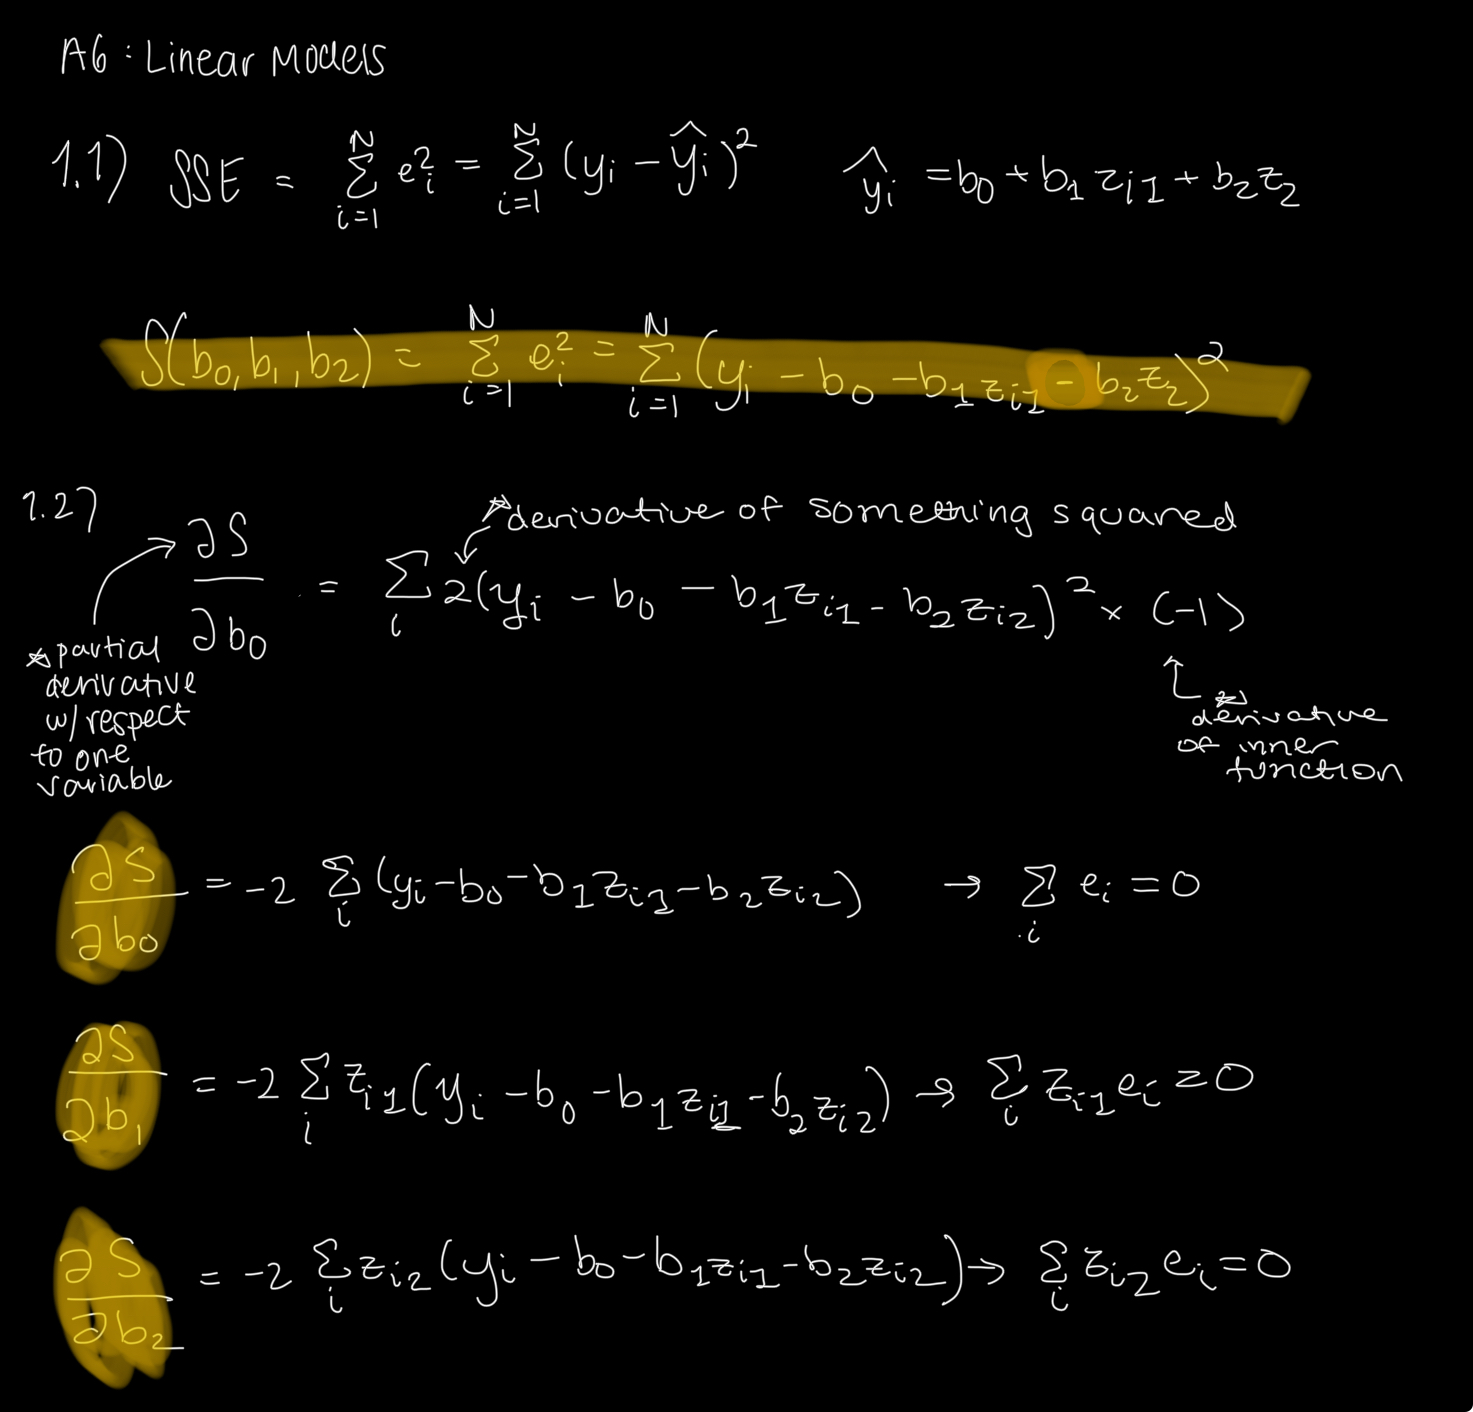 A6 : Linear Models
1.1) SSE = \sum_{i=1}^{N} e_i^2 = \sum_{i=1}^{N} (y_i - \hat{y}_i)^2    \hat{y}_i = b_0 + b_1 z_{i1} + b_2 z_2
S(b_0, b_1, b_2) = \sum_{i=1}^{N} e_i^2 = \sum_{i=1}^{N} (y_i - b_0 - b_1 z_{i1} - b_2 z_2)^2
1.2)
* derivative of something squared
\frac{∂S}{∂b_0} = \sum_i 2(y_i - b_0 - b_1 z_{i1} - b_2 z_{i2})^2 × (-1)
* partial
derivative
w/ respect
to one
variable
* derivative
of inner
function
\frac{∂S}{∂b_0} = -2 \sum_i (y_i - b_0 - b_1 z_{i1} - b_2 z_{i2}) → \sum_i e_i = 0
\frac{∂S}{∂b_1} = -2 \sum_i z_{i1} (y_i - b_0 - b_1 z_{i1} - b_2 z_{i2}) → \sum_i z_{i1} e_i = 0
\frac{∂S}{∂b_2} = -2 \sum_i z_{i2} (y_i - b_0 - b_1 z_{i1} - b_2 z_{i2}) → \sum_i z_{i2} e_i = 0